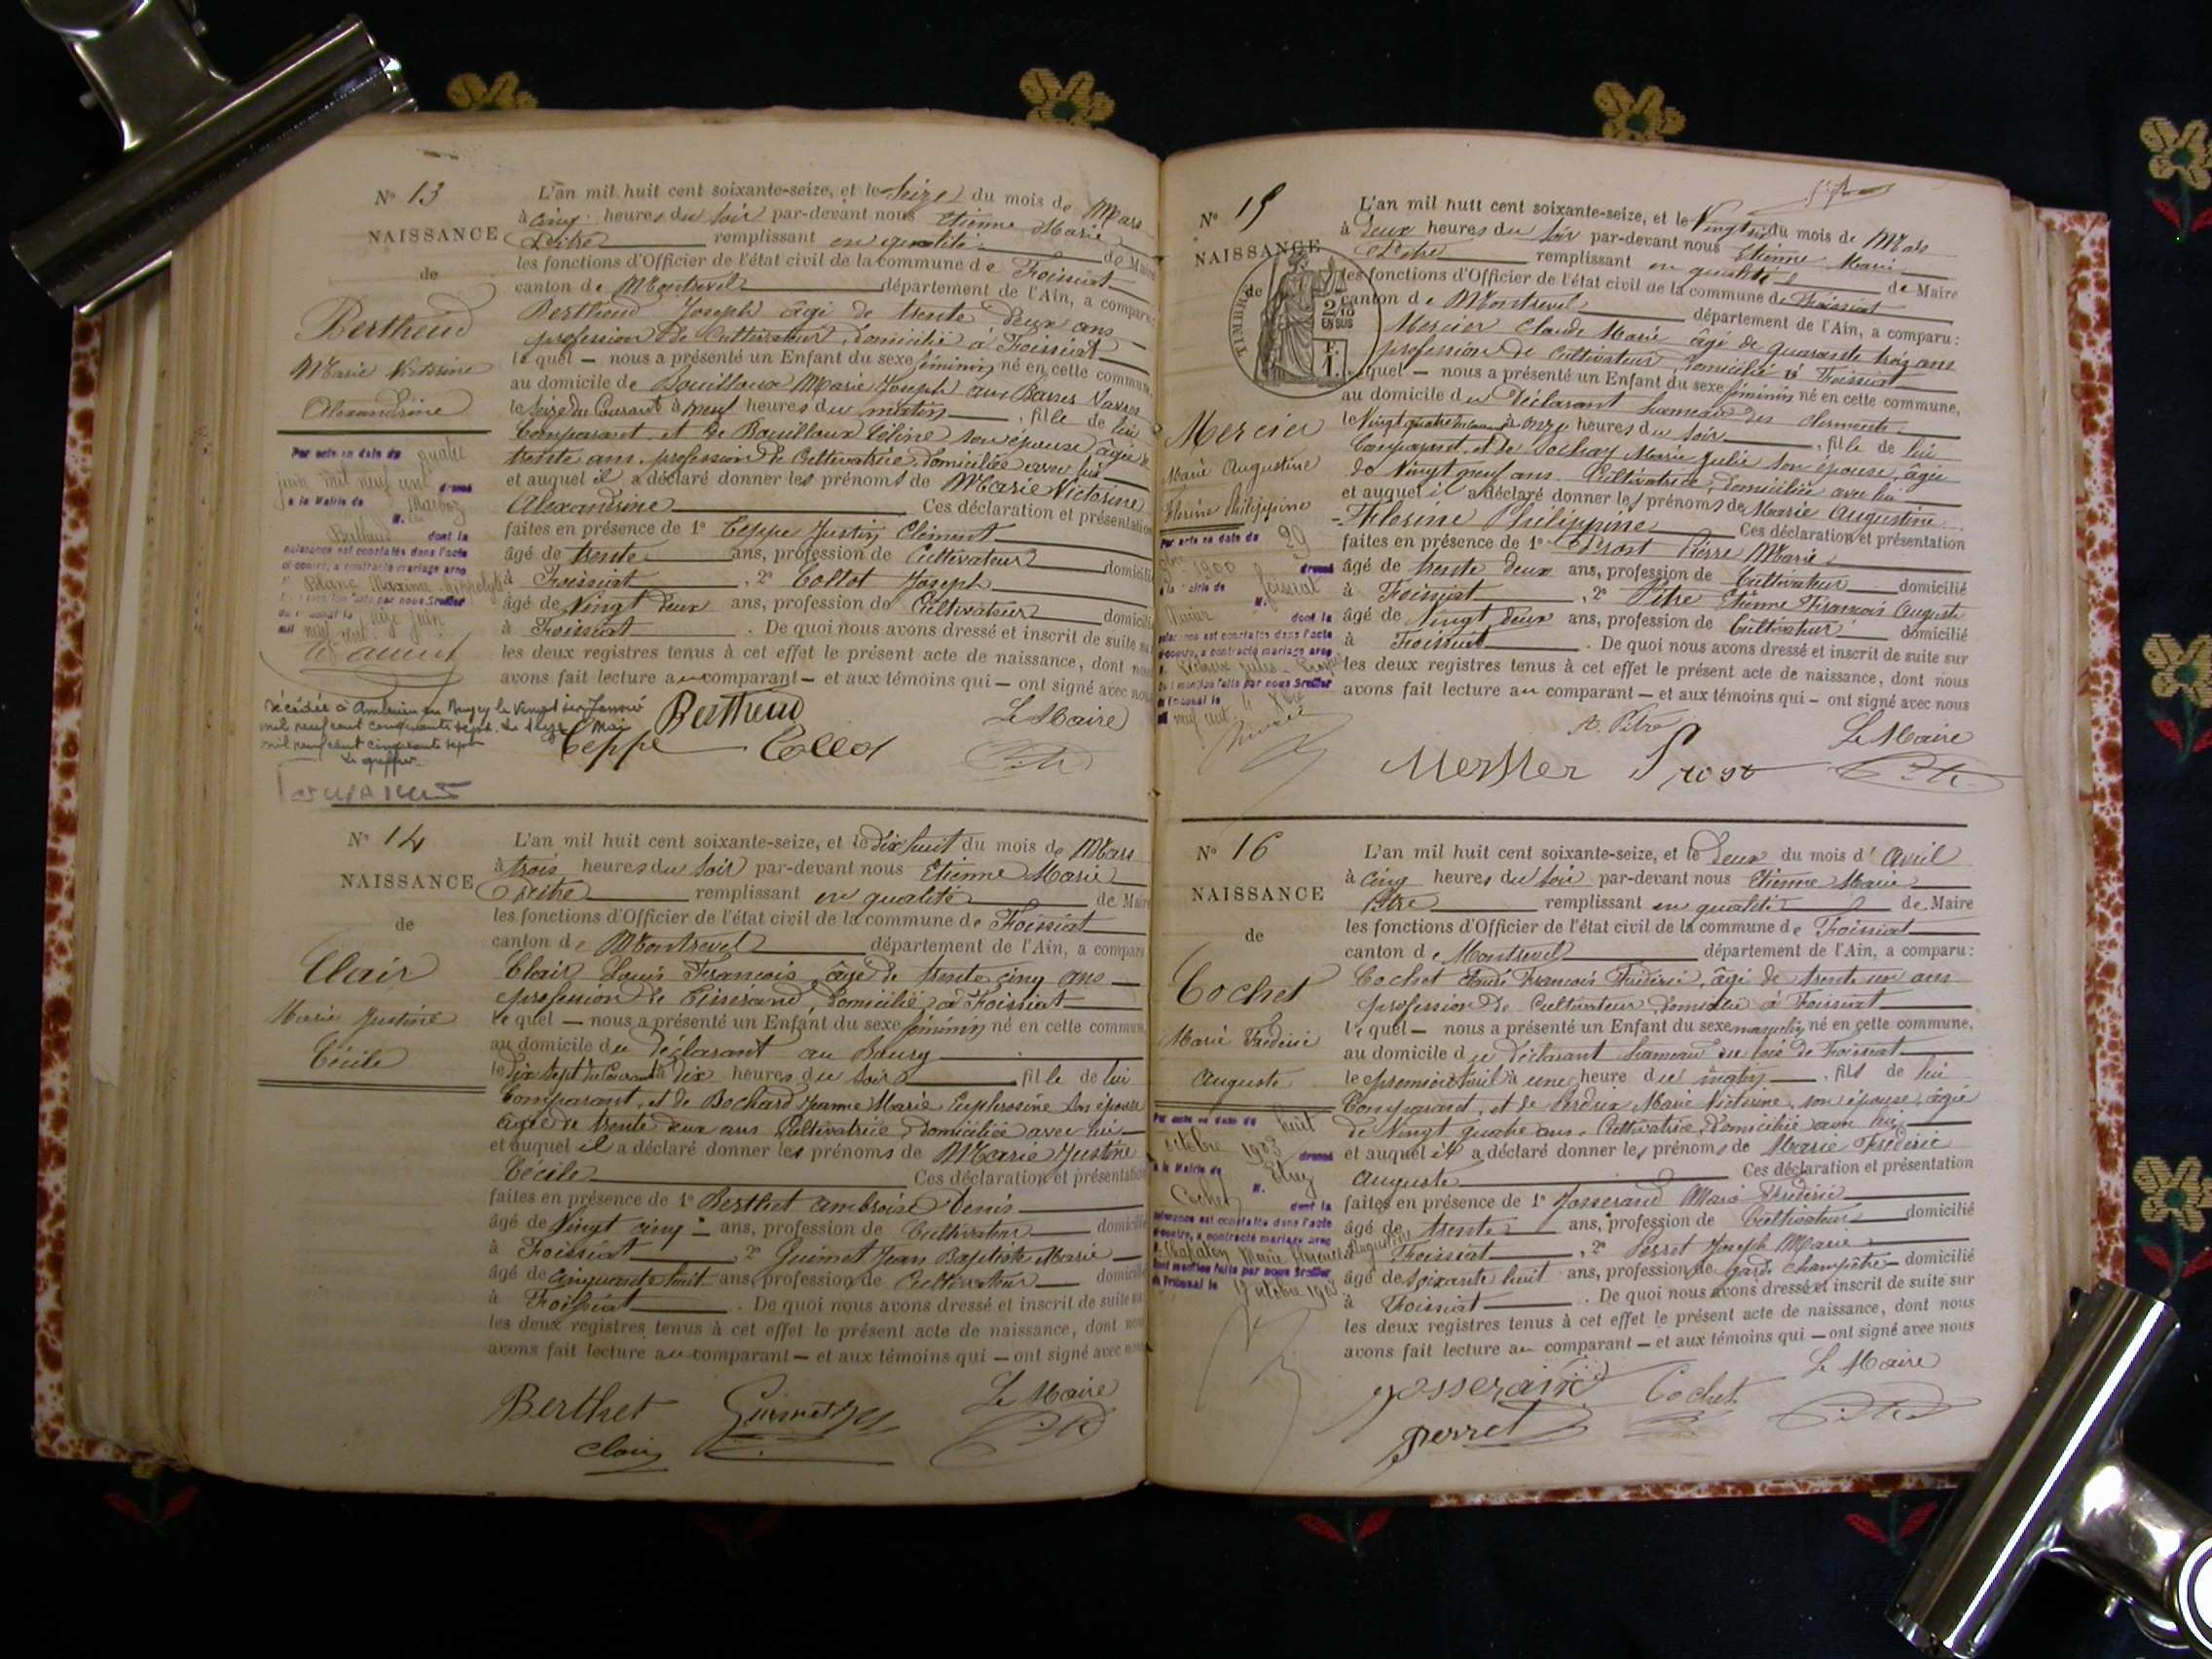 N° 13
NAISSANCE
de
Bertheud
Marie Victorine
Alexandrine
Par acte en date du quatre
juin mil neuf cent dressé
à la Mairie de Marboz
M.
dont la
naissance est constatée dans l'acte
ci-contre, a contracté mariage avec
Blanc Maxime
mention faite par nous Greffier
du Tribunal le seize juin
mil neuf cent
Décédée à Ambérieu en Bugey le vingt six Janvier
mil neuf cent cinquante sept. Le seize Mai
mil neuf cent cinquante sept
Le greffier
L'an mil huit cent soixante-seize, et le seize du mois de Mars
à cinq heures du soir par-devant nous Etienne Marie
Pitre remplissant en qualité de Maire
les fonctions d'Officier de l'état civil de la commune de Foissiat
canton de Montrevel département de l'Ain, a comparu:
Bertheud Joseph âgé de trente deux ans
profession de Cultivateur, domicilié à Foissiat
lequel — nous a présenté un Enfant du sexe féminin né en cette commune,
au domicile de Bouilloux Marie Joseph aux Basses Varnes
le seize du Courant à neuf heures du matin , fille de lui
Comparant, et de Bouilloux Céline son épouse âgée de
trente ans, profession de Cultivatrice, domiciliée avec lui
et auquel il a déclaré donner les prénoms de Marie Victorine
Alexandrine Ces déclaration et présentation
faites en présence de 1° Ceppe Justin Clément
âgé de trente ans, profession de Cultivateur domicilié
à Foissiat , 2° Collot Joseph
âgé de Vingt deux ans, profession de Cultivateur domicilié
à Foissiat . De quoi nous avons dressé et inscrit de suite sur
les deux registres tenus à cet effet le présent acte de naissance, dont nous
avons fait lecture au comparant — et aux témoins qui — ont signé avec nous
Bertheud Le Maire
Ceppe Collot Pitre
N° 14
NAISSANCE
de
Clair
Marie Justine
Cécile
L'an mil huit cent soixante-seize, et le dix huit du mois de Mars
à trois heures du soir par-devant nous Etienne Marie
Pitre remplissant en qualité de Maire
les fonctions d'Officier de l'état civil de la commune de Foissiat
canton de Montrevel département de l'Ain, a comparu
Clair Louis François, âgé de trente cinq ans
profession de Tisserand, domicilié à Foissiat
lequel — nous a présenté un Enfant du sexe féminin né en cette commune,
au domicile du déclarant au Bourg
le dix sept du Courant à dix heures du soir , fille de lui
Comparant, et de Bochard Jeanne Marie Euphrosine son épouse
âgée de trente deux ans Cultivatrice, domiciliée avec lui
et auquel il a déclaré donner les prénoms de Marie Justine
Cécile Ces déclaration et présentation
faites en présence de 1° Berthet Ambroise Denis
âgé de Vingt cinq ans, profession de Cultivateur domicilié
à Foissiat , 2° Guimet Jean Baptiste Marie
âgé de cinquante huit ans, profession de Cultivateur domicilié
à Foissiat . De quoi nous avons dressé et inscrit de suite sur
les deux registres tenus à cet effet le présent acte de naissance, dont nous
avons fait lecture au comparant — et aux témoins qui — ont signé avec nous
Berthet Guimet Le Maire
Clair Pitre
N° 15
NAISSANCE
de
TIMBRE
2/10
EN SUS
F.
1.
Mercier
Marie Augustine
Florine Philippine
Par acte en date du 29
1900 dressé
à la Mairie de Foissiat
M.
dont la
naissance est constatée dans l'acte
ci-contre, a contracté mariage avec
mention faite par nous Greffier
du Tribunal le
mil neuf cent
L'an mil huit cent soixante-seize, et le Vingt six du mois de Mars
à deux heures du soir par-devant nous Etienne Marie
Pitre remplissant en qualité de Maire
les fonctions d'Officier de l'état civil de la commune de Foissiat
canton de Montrevel département de l'Ain, a comparu:
Mercier Claude Marie âgé de quarante trois ans
profession de Cultivateur, domicilié à Foissiat
lequel — nous a présenté un Enfant du sexe féminin né en cette commune,
au domicile du déclarant hameau des
le Vingt quatre à onze heures du soir , fille de lui
Comparant, et de Sochay Marie Julie son épouse, âgée
de Vingt neuf ans Cultivatrice, domiciliée avec lui
et auquel il a déclaré donner les prénoms de Marie Augustine
Florine Philippine Ces déclaration et présentation
faites en présence de 1° Prost Pierre Marie
âgé de trente deux ans, profession de Cultivateur domicilié
à Foissiat , 2° Pitre Etienne François Auguste
âgé de Vingt deux ans, profession de Cultivateur domicilié
à Foissiat . De quoi nous avons dressé et inscrit de suite sur
les deux registres tenus à cet effet le présent acte de naissance, dont nous
avons fait lecture au comparant — et aux témoins qui — ont signé avec nous
A. Pitre Le Maire
Mercier Prost Pitre
N° 16
NAISSANCE
de
Cochet
Marie Frédéric
Auguste
Par acte en date du huit
octobre 1903 dressé
à la Mairie de Etrez
Cochet M.
dont la
naissance est constatée dans l'acte
ci-contre, a contracté mariage avec
Chatelon Marie
dont mention faite par nous Greffier
du Tribunal le 17 octobre 1903
L'an mil huit cent soixante-seize, et le deux du mois d'Avril
à cinq heures du soir par-devant nous Etienne Marie
Pitre remplissant en qualité de Maire
les fonctions d'Officier de l'état civil de la commune de Foissiat
canton de Montrevel département de l'Ain, a comparu:
Cochet François Frédéric, âgé de trente un ans
profession de Cultivateur, domicilié à Foissiat
lequel — nous a présenté un Enfant du sexe masculin né en cette commune,
au domicile du déclarant hameau du bois de Foissiat
le premier Avril à une heure du matin , fils de lui
Comparant, et de Perdrix Marie Victorine, son épouse, âgée
de Vingt quatre ans, Cultivatrice, domiciliée avec lui
et auquel il a déclaré donner les prénoms de Marie Frédéric
Auguste Ces déclaration et présentation
faites en présence de 1° Josserand Marie Frédéric
âgé de trente ans, profession de Cultivateur domicilié
à Foissiat , 2° Perret Joseph Marie
âgé de soixante huit ans, profession de garde Champêtre domicilié
à Foissiat . De quoi nous avons dressé et inscrit de suite sur
les deux registres tenus à cet effet le présent acte de naissance, dont nous
avons fait lecture au comparant — et aux témoins qui — ont signé avec nous
Josserand Cochet Le Maire
Perret Pitre